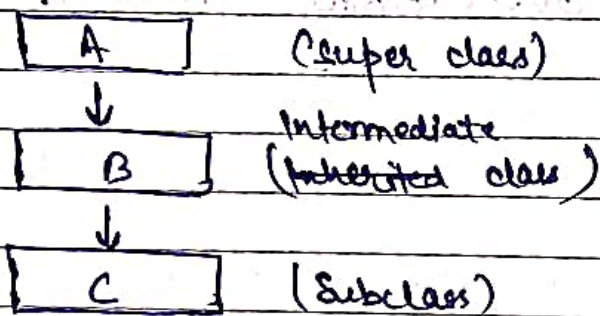 A (super class)
Intermediate
B (Inherited class)
C (Subclass)